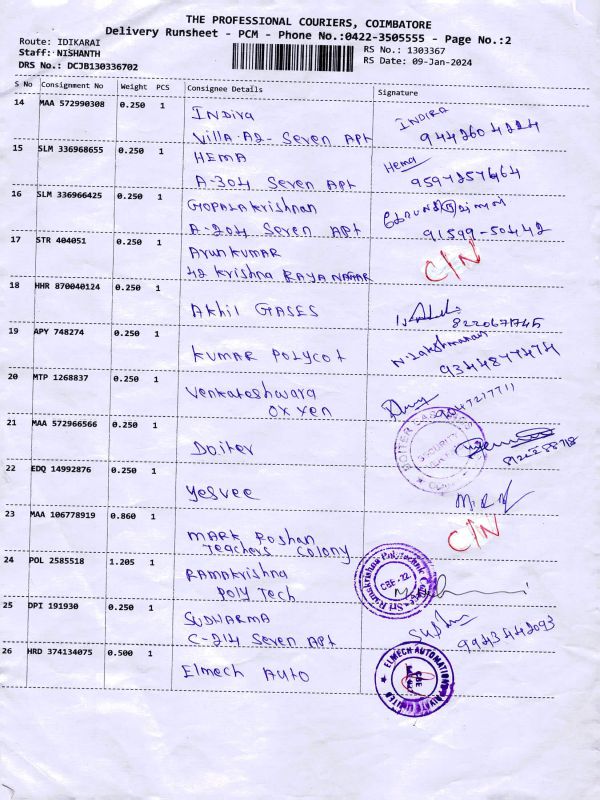 THE PROFESSIONAL COURIERS, COIMBATORE
Delivery Runsheet - PCM - Phone No.:0422-3505555 - Page No.:2
Route: IDIKARAI
Staff: NISHANTH
DRS No.: DCJB130336702
RS No.: 1303367
RS Date: 09-Jan-2024
S No Consignment No Weight PCS Consignee Details Signature
14 MAA 572990308 0.250 1 INDIRA INDIRA
Villa A2- Seven Apt
15 SLM 336968655 0.250 1 HEMA Hema
A-304 Seven Apt
16 SLM 336966425 0.250 1 GOPALAKrishnan
A-204 Seven Apt 91599-50442
17 STR 404051 0.250 1 ArunKUMAR C/N
42 Krishna RAYA NAGAR
18 HHR 870040124 0.250 1
AKhil GASES
19 APY 748274 0.250 1
KUMAR POLYCOT N. Lakshmanan
20 MTP 1268837 0.250 1 Venkateshwara
OXYEN
21 MAA 572966566 0.250 1
Doiter
22 EDQ 14992876 0.250 1
Yesvee
23 MAA 106778919 0.860 1 C/N
MARK Roshan
Teachers Colony
24 POL 2585518 1.205 1 RAMAKrishna
POLY Tech
25 DPI 191930 0.250 1 SUDHARMA
C-214 Seven Apt
26 HRD 374134075 0.500 1 Elmech AUTO
ELMECH AUTOMATION PRIVATE LIMITED